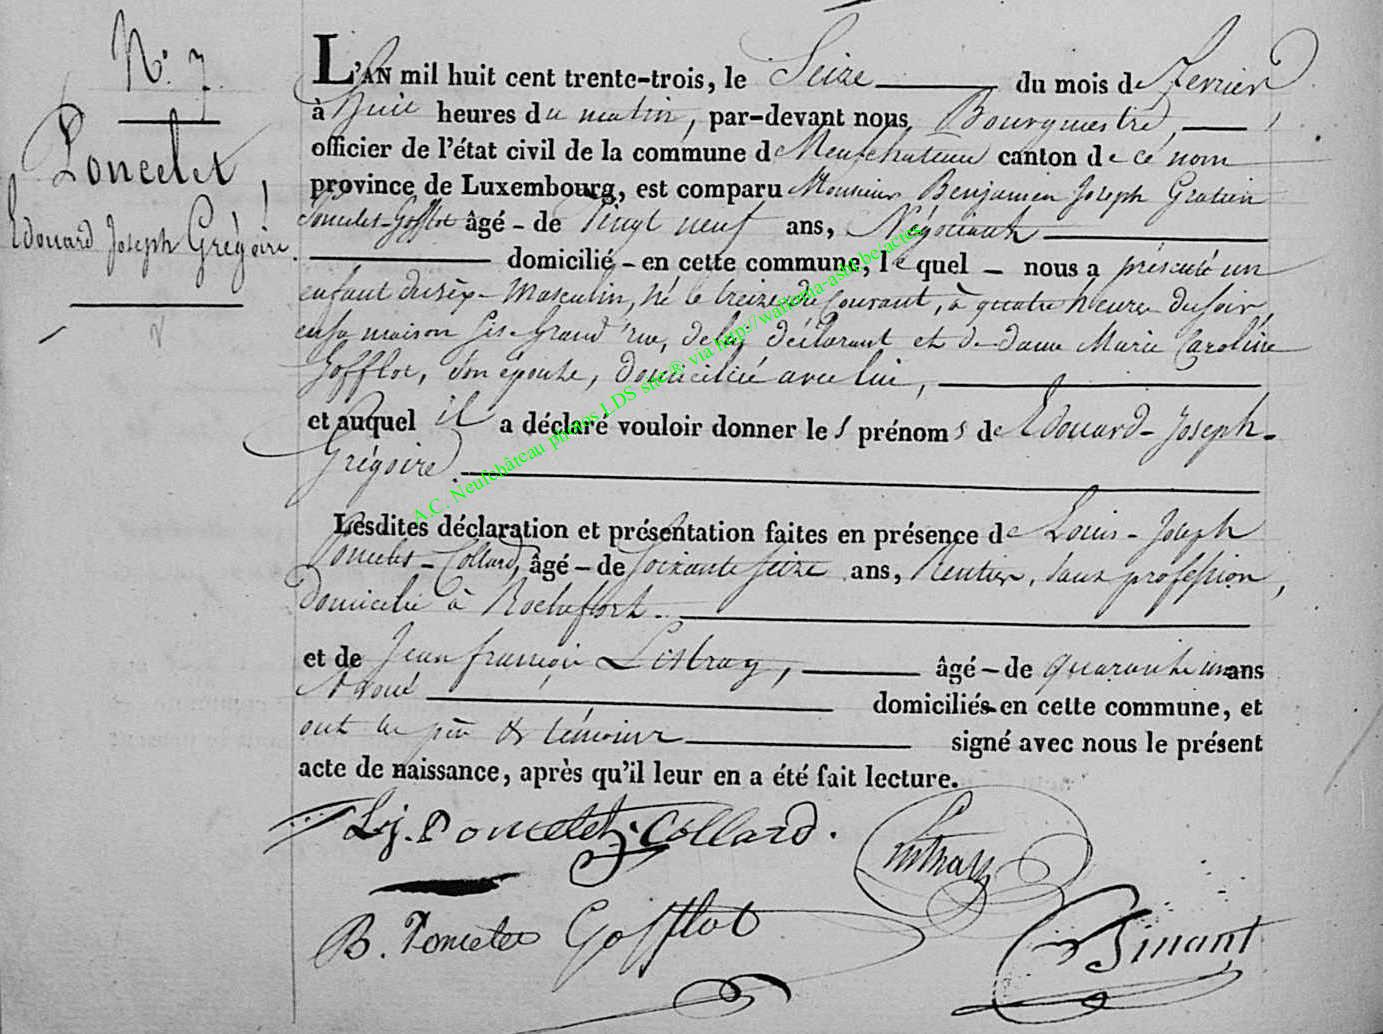 N° 7
Poncelet,
Edouard Joseph Grégoire.
L'AN mil huit cent trente-trois, le Seize du mois de Fevrier
à huit heures du matin, par-devant nous Bourgmestre,
officier de l'état civil de la commune de Neufchateau canton de ce nom
province de Luxembourg, est comparu Monsieur Benjamin Joseph Gratien
Poncelet-Gofflot âgé - de Vingt neuf ans, Négociant
domicilié - en cette commune, le quel - nous a présenté un
enfant du sèxe Masculin, né le treize du Courant, à quatre heures du soir,
en sa maison sise Grand'rue, de lui déclarant et de dame Marie Caroline
Gofflot, son épouse, domiciliée avec lui,
et auquel il a déclaré vouloir donner les prénoms de Edouard-Joseph-
Grégoire.
Lesdites déclaration et présentation faites en présence de Louis-Joseph
Poncelet-Collard, âgé - de Soixante seize ans, Rentier, sans profession,
domicilié à Rochefort.
et de Jean françois Lestray, âgé - de quarante un ans
Avoué domiciliés en cette commune, et
ont les père & témoins signé avec nous le présent
acte de naissance, après qu'il leur en a été fait lecture.
L.j. Poncelet-Collard.
Lestray
B. Poncelet Gofflot
Binant
A.C. Neufchâteau photos LDS site® via http://wallonia-asbl.be/actes